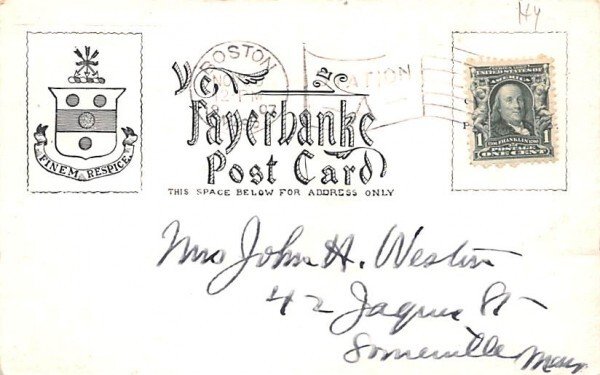 Hy
BOSTON
STATION
07
Ye
Fayerbanke
Post Card
THIS SPACE BELOW FOR ADDRESS ONLY
FINEM RESPICE
UNITED STATES OF
AMERICA
1 1
FRANKLIN
POSTAGE
ONE CENT
Mrs John H. Weston
42 Jaques St
Somerville Mass